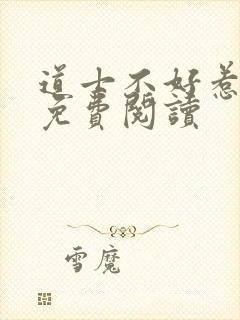 道士不好惹
免費閱讀
雪魔